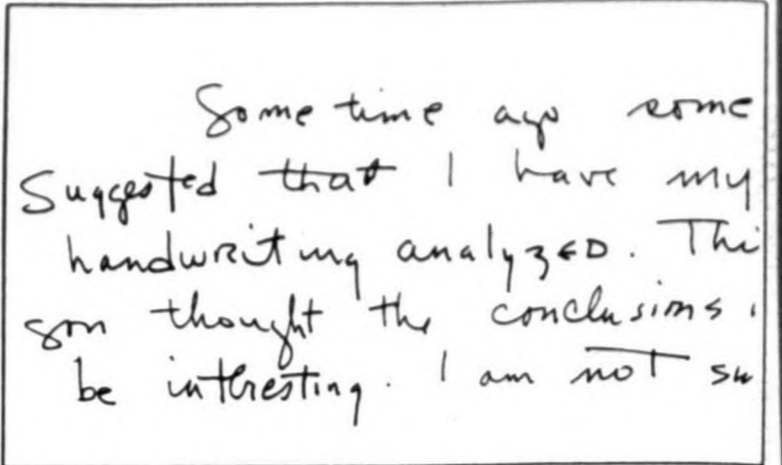 Some time ago some
Suggested that I have my
handwriting analyzED. Thi
son thought the conclusions
be interesting. I am not su